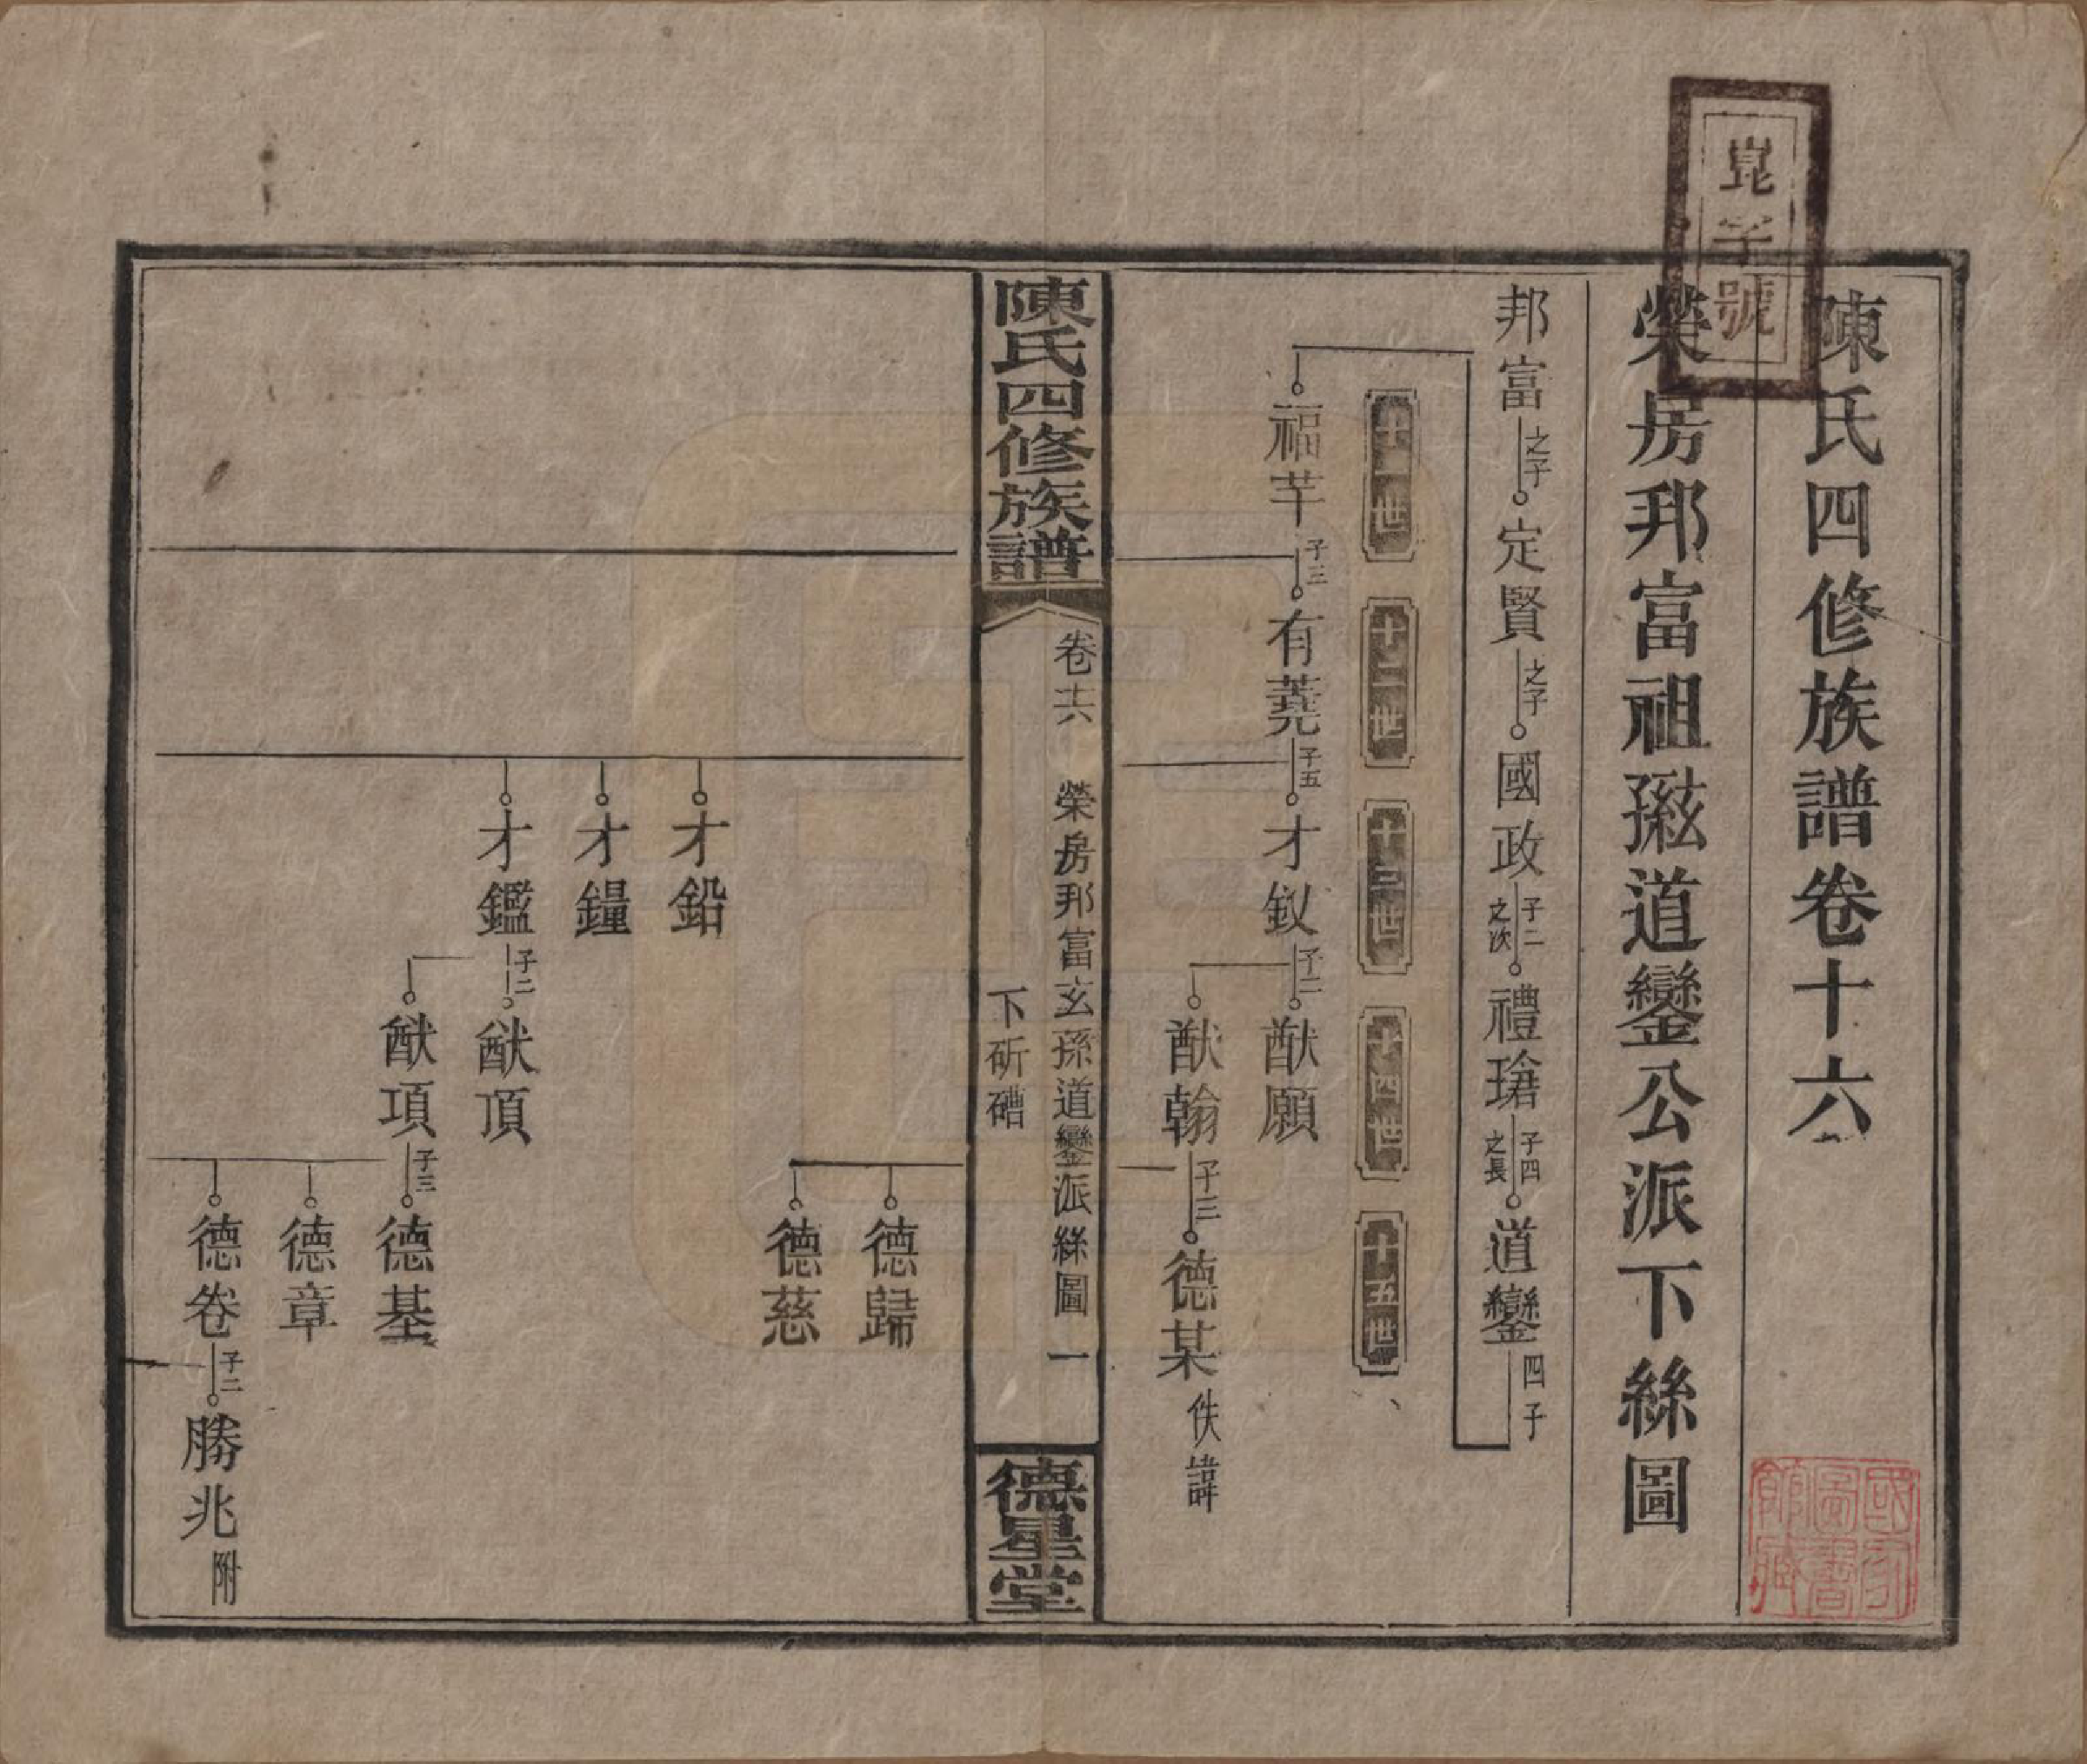 崑字號
陳氏四修族譜卷十六
榮房邦富祖孫道鑾公派下絲圖
邦富 之子 定賢 之子 國政 子二之次 禮珺 子四之長 道鑾 四子
十一世 十二世 十三世 十四世 十五世
福芊 子三 有蕘 子五 才釵 子二 猷願
猷翰 子三 德某 佚諱
陳氏四修族譜
卷十六 榮房邦富玄孫道鑾派絲圖 一
下斫磄
德星堂
德歸
德慈
才鉛
才鐘
才鑑 子二 猷頂
猷項 子三 德基
德章
德卷 子二 勝兆 附
國家圖書館藏